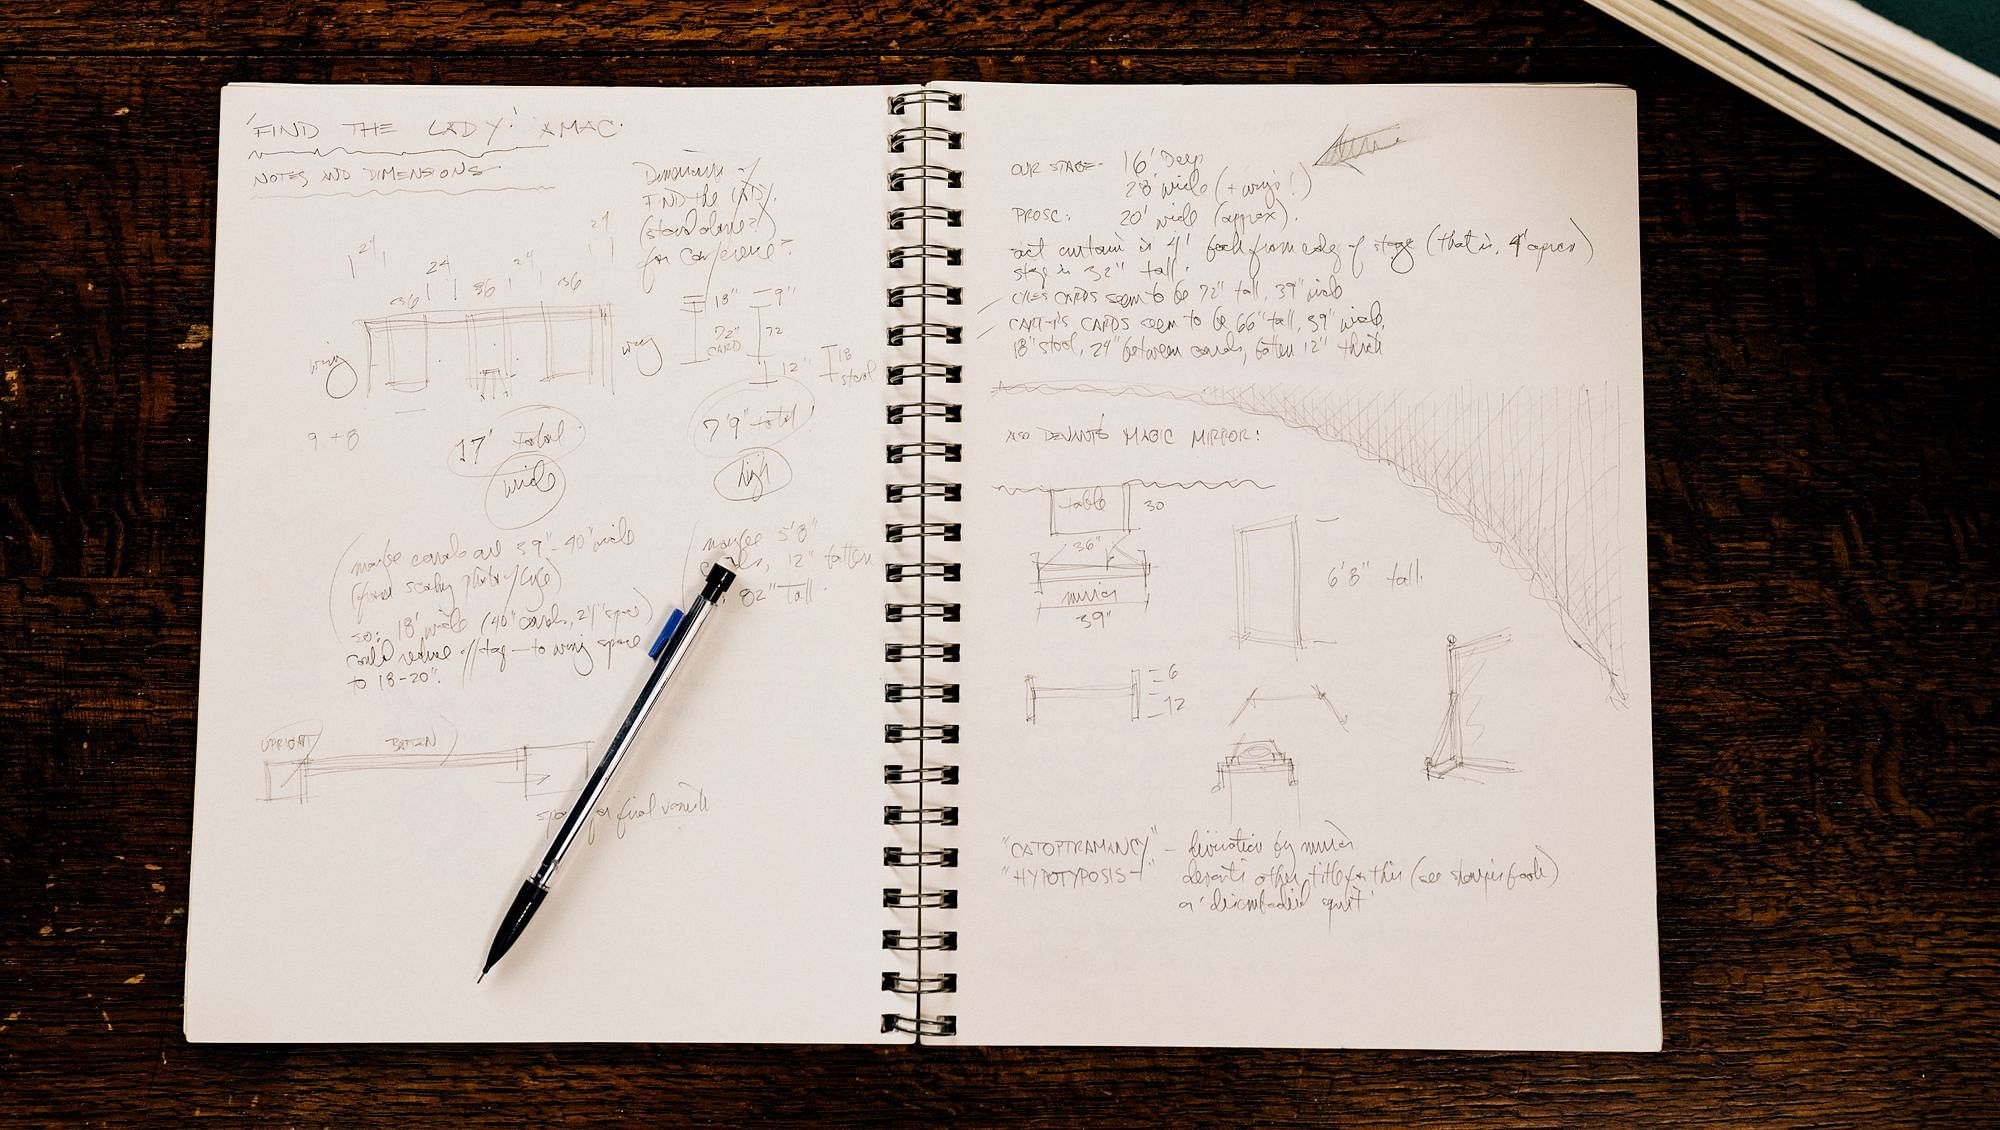 'FIND THE LADY.' AMAC.
NOTES AND DIMENSIONS
Dimensions of
FIND the LADY.
(stand alone?)
for conference?
24
24
24
24
36
36
36
wing
wing
18"
9"
72"
CARD
72
12"
18
stool
9 + 8
17' total
wide
7'9" total!
high
(maybe cards are 39"-40" wide
(from scaling photo
so: 18' wide (40" cards, 24" space)
could reduce to wing space
to 18-20".
(maybe 5'8"
12" batten
82" tall.
UPRIGHT
BATTEN
for final vanish
OUR STAGE- 16' Deep
28' wide (+ wings!)
PROSC: 20' wide (approx).
act curtain is 4' back from edge of stage (that is, 4' apron)
stage is 32" tall.
CYRIL'S CARDS seem to be 72" tall, 39" wide
CARDS seem to be 66" tall, 39" wide,
18" stool, 24" between cards, batten 12" thick
ALSO DEVANT'S MAGIC MIRROR:
table
30
36"
mirror
39"
6'8" tall.
6
12
"CATOPTRAMANCY" - divination by mirror
"HYPOTYPOSIS-" devant's other title for this (see book)
or 'disembodied spirit'